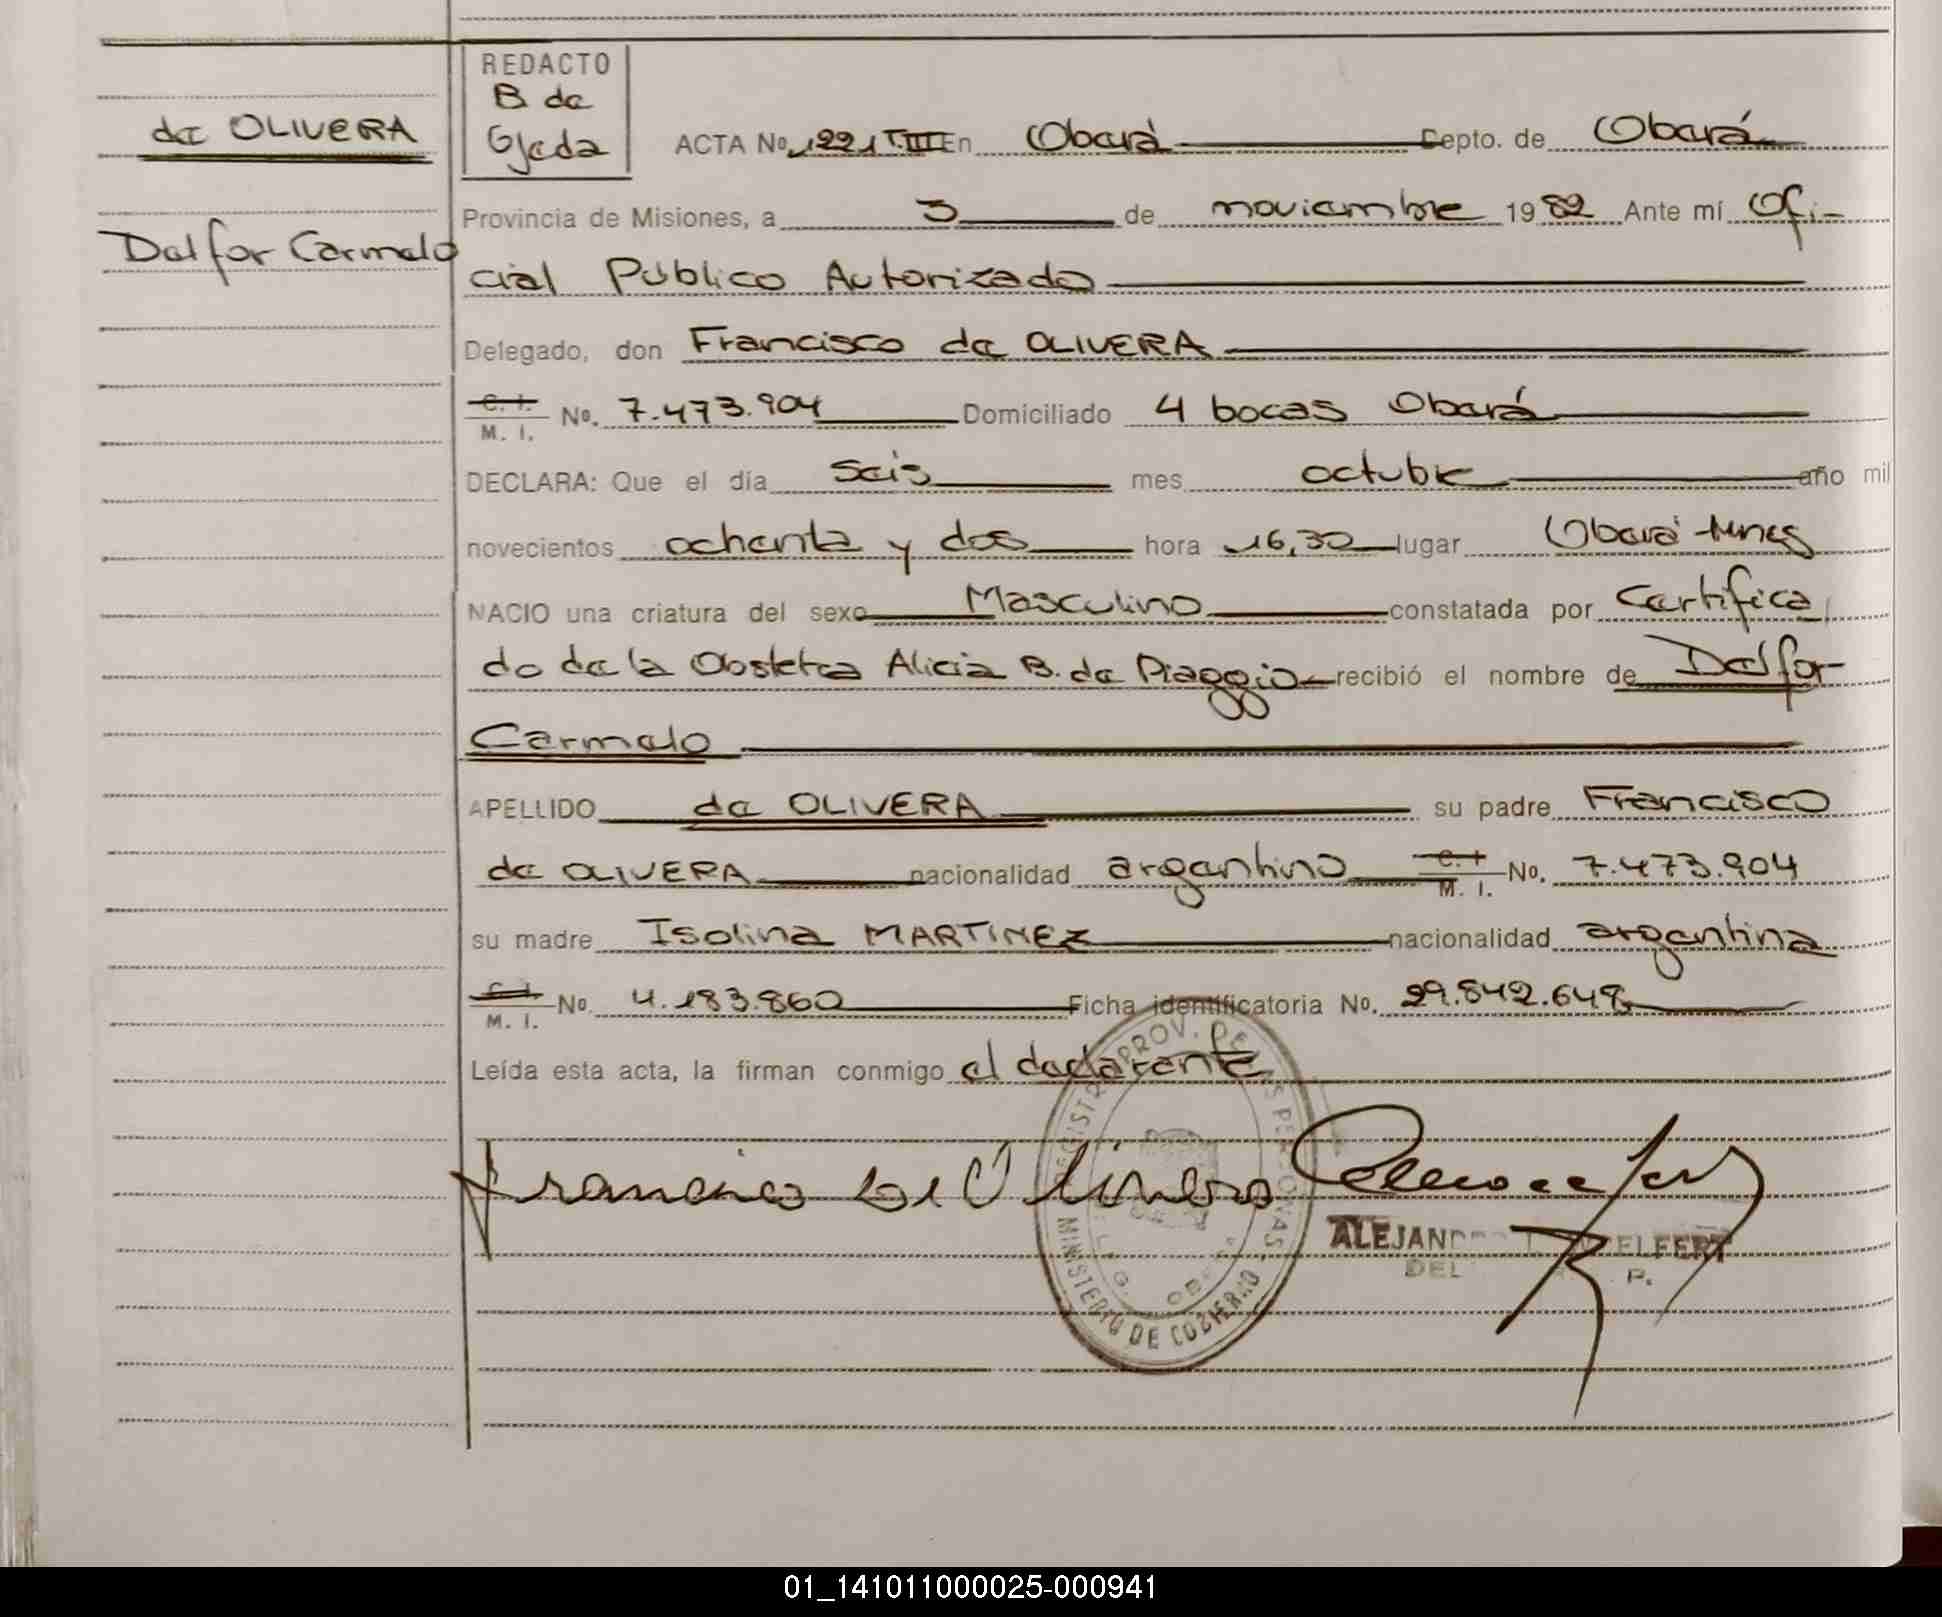 REDACTO
B de
Ojeda
de OLIVERA
ACTA No. 1221 T.III En Oberá Depto. de Oberá
Provincia de Misiones, a 3 de noviembre 1982 Ante mí Ofi-
Delfor Carmelo
cial Público Autorizado
Delegado, don Francisco de OLIVERA
C. I. M. I. No. 7.473.904 Domiciliado 4 bocas Oberá
DECLARA: Que el día seis mes octubre año mil
novecientos ochenta y dos hora 16,30 lugar Oberá Mnes
NACIO una criatura del sexo Masculino constatada por Certifica
do de la Obstetra Alicia B. de Piaggio recibió el nombre de Delfor
Carmelo
APELLIDO de OLIVERA su padre Francisco
de OLIVERA nacionalidad argentino C. I. M. I. No. 7.473.904
su madre Isolina MARTINEZ nacionalidad argentina
C. I. M. I. No. 4.183.860 Ficha identificatoria No. 29.842.648
Leída esta acta, la firman conmigo el declarante
REGISTRO PROV. DE LAS PERSONAS
MINISTERIO DE GOBIERNO
Francisco de Olivera
ALEJAN ELFERT
DEL P.
01_141011000025-000941